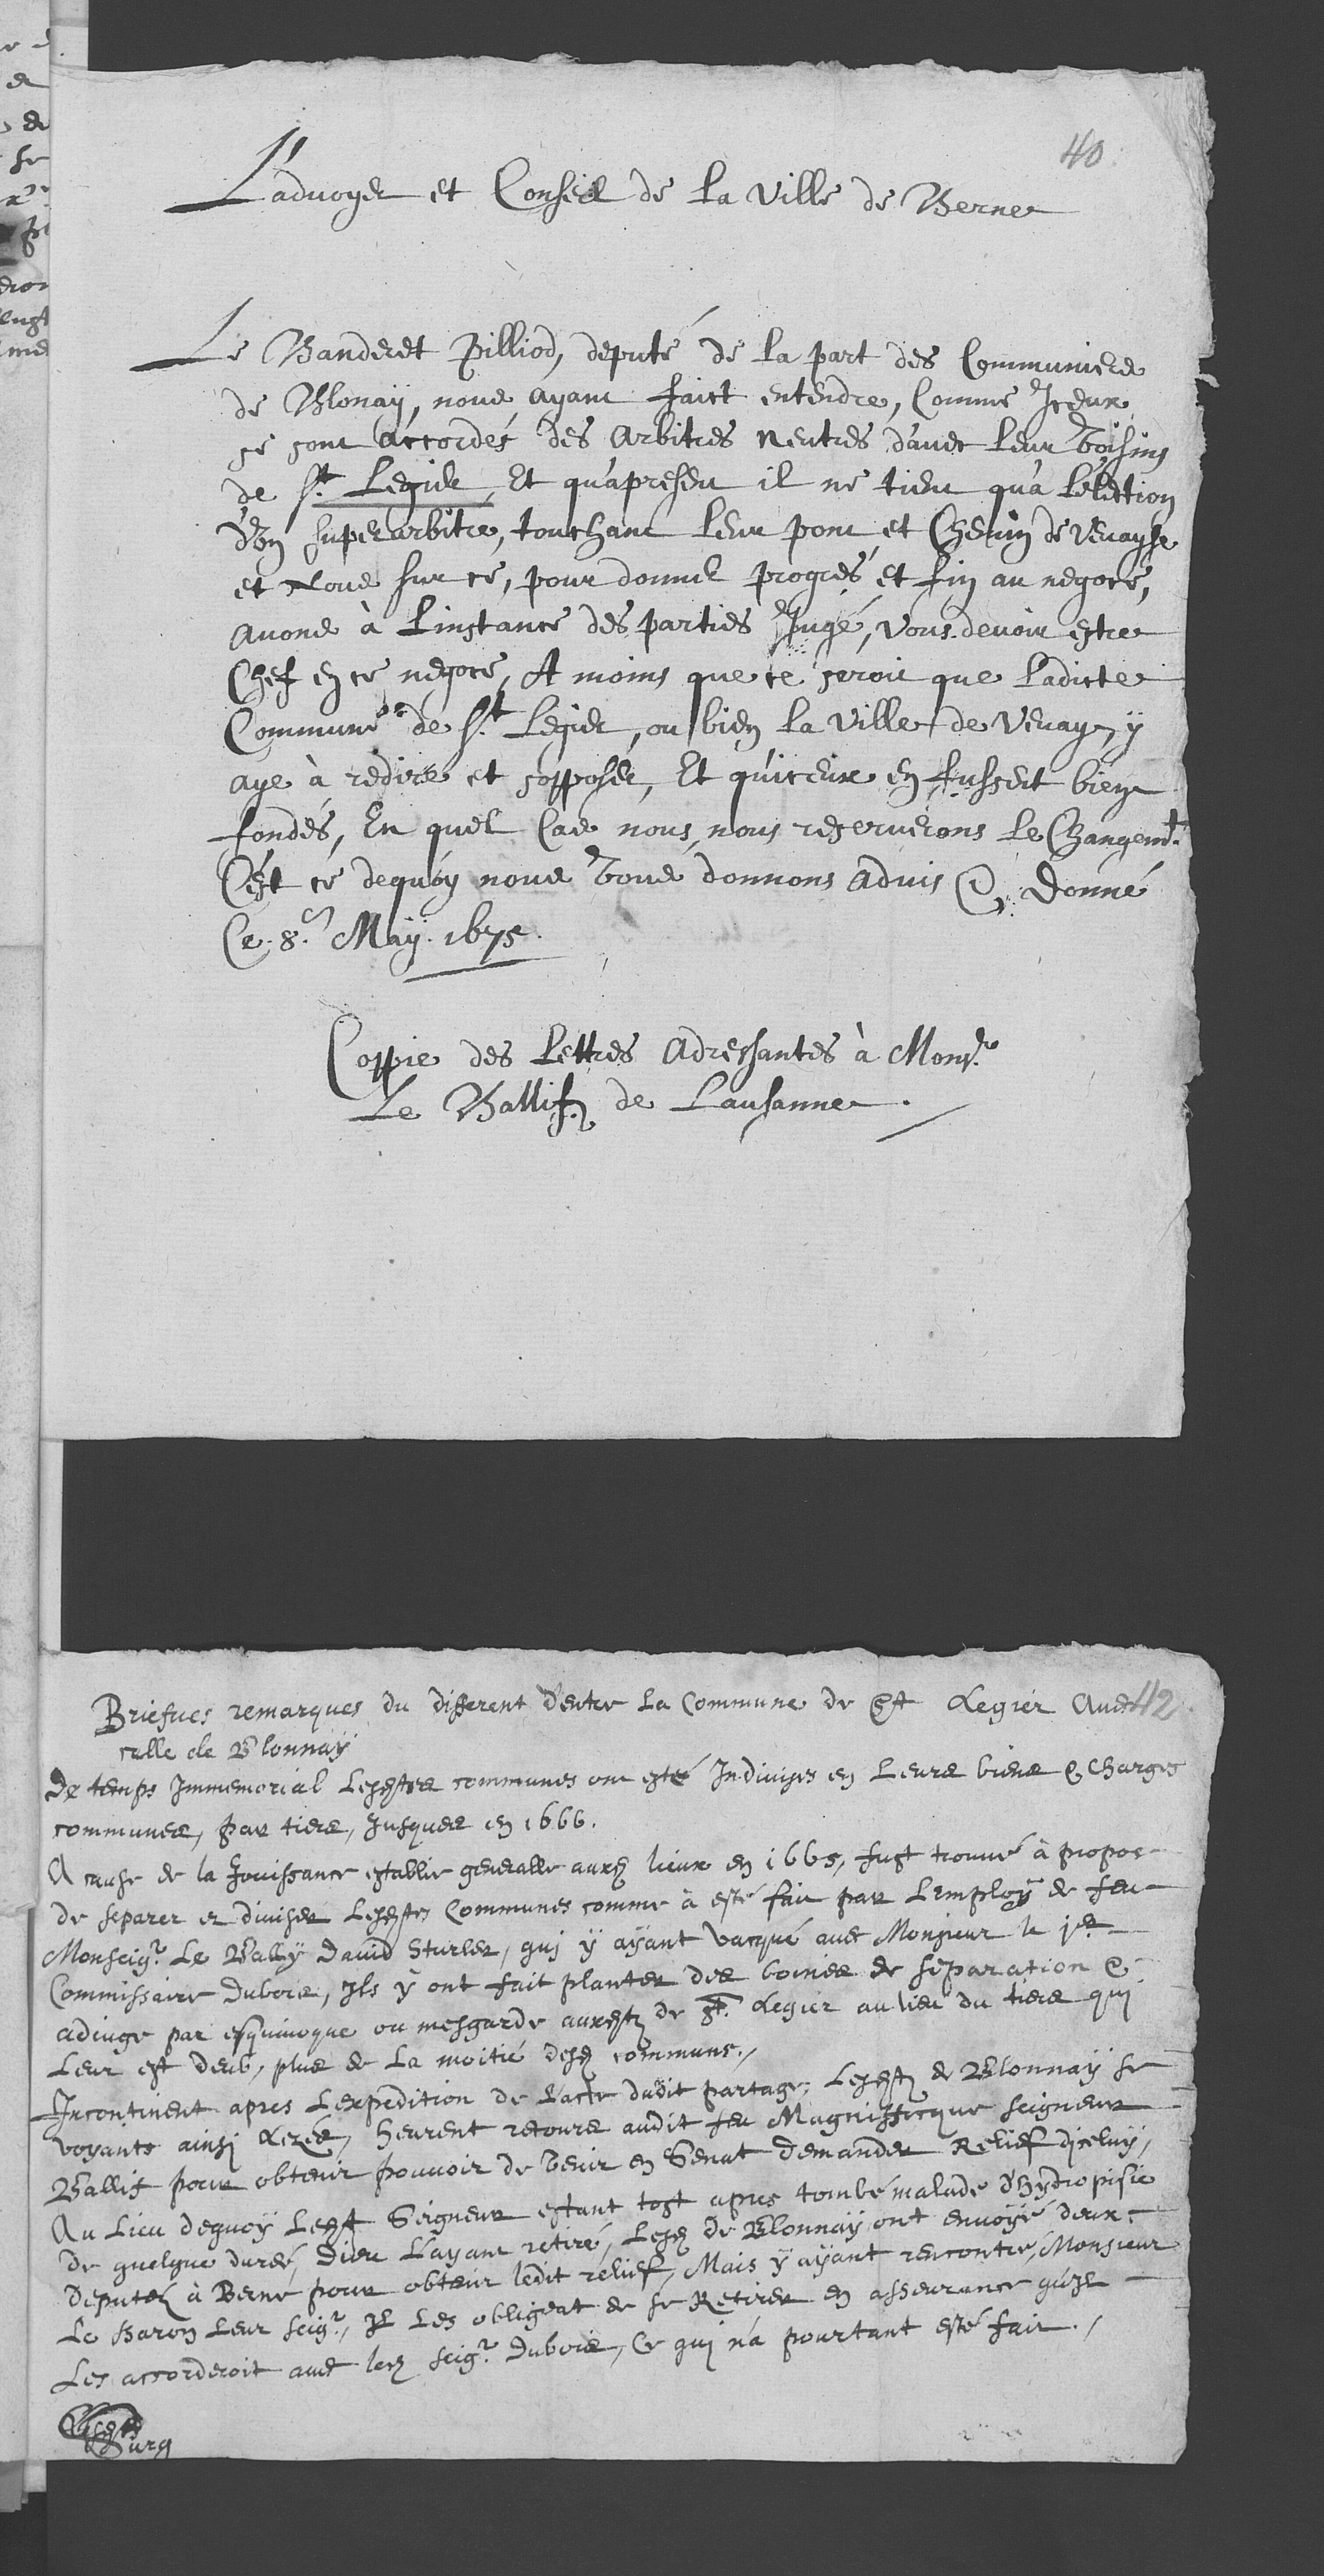 40
L'advoyer et Conseil de la Ville de Berne
Le Banderet Pilliod, deputé de la part des Communiers
de Blonaÿ, nous ayant faict entendre, Comme Iceux
se sont accordés des Arbitres neutres d'avec leur Voisins
de St. Legier, Et qu'apresent il ne tient qu'à l'élection
d'un superarbitre, touchant leur pont et Chemin de Vevayse
et Nous sur ce, pour donner progrés et fin au negoce,
avons à l'instance des parties Jugé, Vous devoir estre
Chef en ce negoce, A moins que ce seroit que ladicte
Commune de St. Legier, ou bien la Ville de Vevay, ÿ
aye à redire et s'opposer, Et qu'iceux en fussent bien
fondés, En quel Cas nous, nous reserverons le Changemt.
C'ést cé dequoÿ nous Vous donnons advis &. Donné
Ce. 8. Maÿ. 1675.
Coppie des lettres Adressantes à Monsr.
Le Ballif de Lausanne.
42
Briefves remarques du different d'entre la Commune de St Legier Avec
celle de Blonnaÿ
De temps Immemorial lesdttes communes ont esté Indivises en Leurs biens & Charges
communes, par tiers, Jusques en 1666.
A cause de la Jouissance establie generalle auxd lieux en 1665, fust trouvé à propos
de separer et diviser Lesdttes Communes comme à esté fait par l'Employ de feu
Monseigr. Le Bally David Sturler, qui ÿ aÿant vacqué avec Monsieur le
Commissaire Dubois, Ils ÿ ont fait planter des boines de separation &
adiuge par esquivoque ou mesgarde auxdts de St. Legier au lieu du tiers qui
Leur est deub, plus de La moitié desd communs./
Incontinent apres L'expedition de L'acte dudit partage, Lesdts de Blonnaÿ se
voyants ainsi Lezés, heurent recours audit feu Magnifficque seigneur
Ballif pour obtenir pouvoir de Venir en Senat demander Relief d'iceluy,
Au Lieu dequoÿ Ledt Seigneur estant tost apres tombé malade d'hydropisie
de quelque durée, Dieu L'ayant retiré, Lesd de Blonnaÿ ont envoyé deux
deputéz à Berne pour obtenir ledit relief, Mais ÿ aÿant rencontré, Monsieur
Le Baron Leur seigr., Il Les obligeat de se Retirer en asseurance qu'Il
Les accorderoit avec led seigr. Dubois, Ce qui n'a pourtant esté fait./